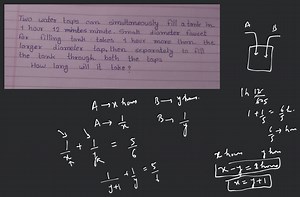 Two water taps can simultaneously fill a tank in
1 hour 12 minutes. Small diameter faucet
for filling tank takes 1 hour more than the
larger diameter tap, then separately to fill
the tank through both the taps
How long will it take?
A B
A → x hour B → y hour
A → 1/x B → 1/y
1/x + 1/y = 5/6
1/(y+1) + 1/y = 5/6
1h 12/60
1 + 1/5 = 6/5 h
6/5 → hour
x hours y hour
x = y+1